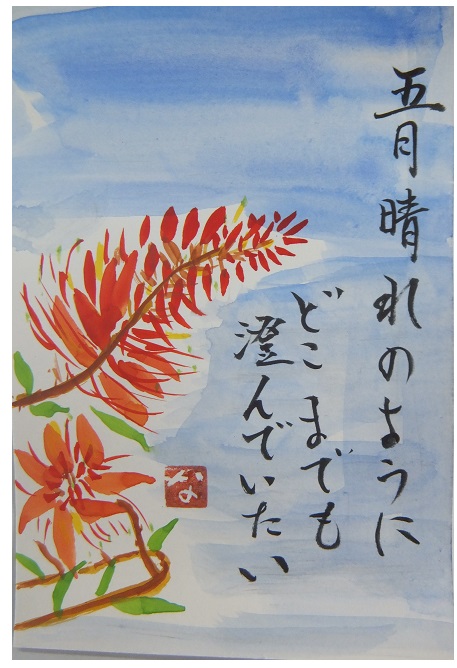 五月晴れのように
どこまでも
澄んでいたい
な